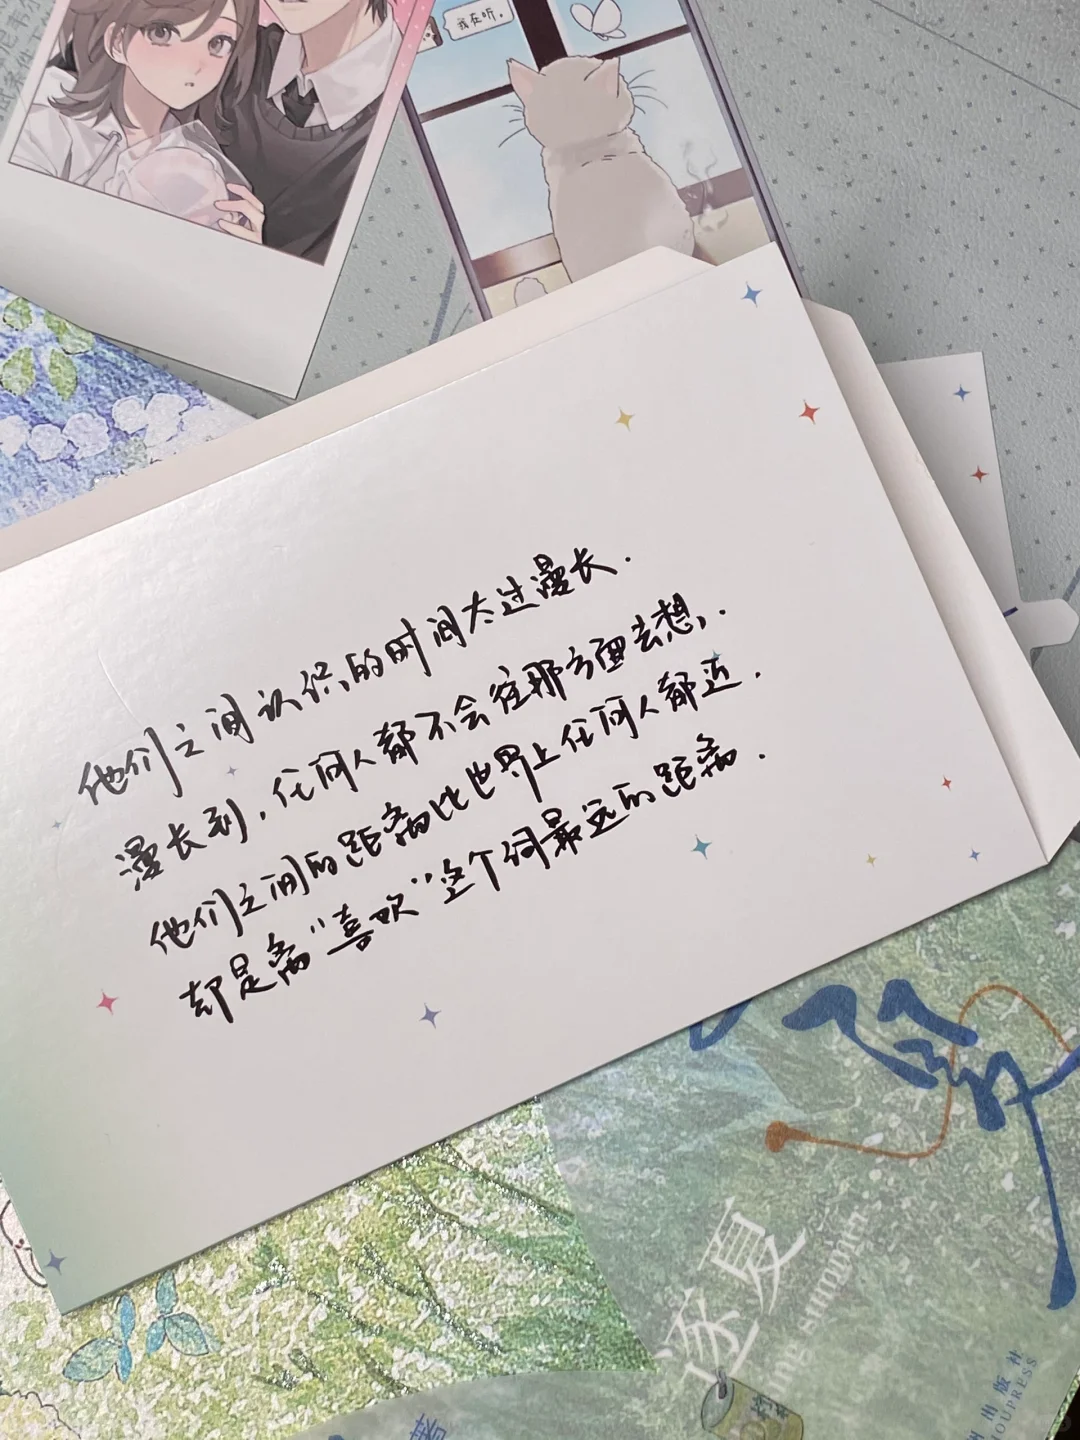 我在听。
他们之间认识的时间太过漫长.
漫长到,任何人都不会往那方面去想,.
他们之间的距离比世界上任何人都近.
却是离"喜欢"这个词最远的距离.
逐夏
ing summer
州出版社
HOUPRESS